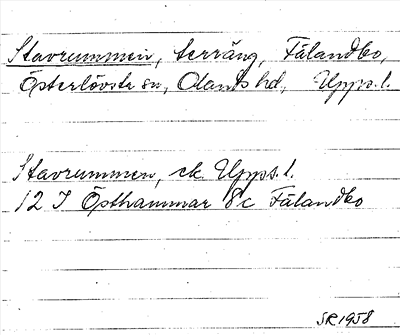 Stavrummen, terräng, Fälandbo,
Österlövsta sn, Olands hd, Upps.l.
Stavrummen, ek Upps.l.
12 I Östhammar 8c Fälandbo
SR 1958